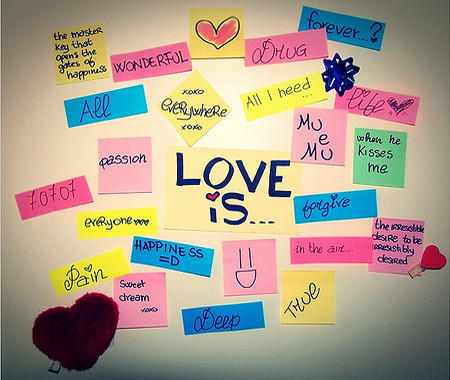 the master
key that
opens the
gates of
happiness
WONDERFUL
DRUG
forever...?
All
xoxo
everywhere
xoxo
All I need ...
life
MU
e
MU
when he
kisses
me
passion
LOVE
iS...
7.07.07
forgive
everyone
HAPPINESS
=D
in the air...
the irresistible
desire to be
irresistibly
desired
Pain
Sweet
dream
xoxo
Deep
True